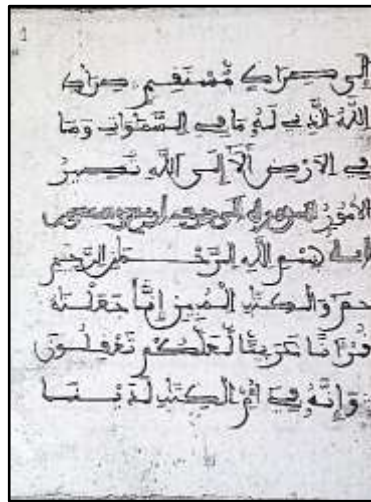 إلى صراط مستقيم صراط
الله الذي له ما في السموات وما
في الارض ألا إلى الله تصير
الامور
بسم الله الرحمن الرحيم
حم والكتب المبين إنا جعلنه
قرءانا عربيا لعلكم تعقلون
وإنه في أم الكتب لدينا